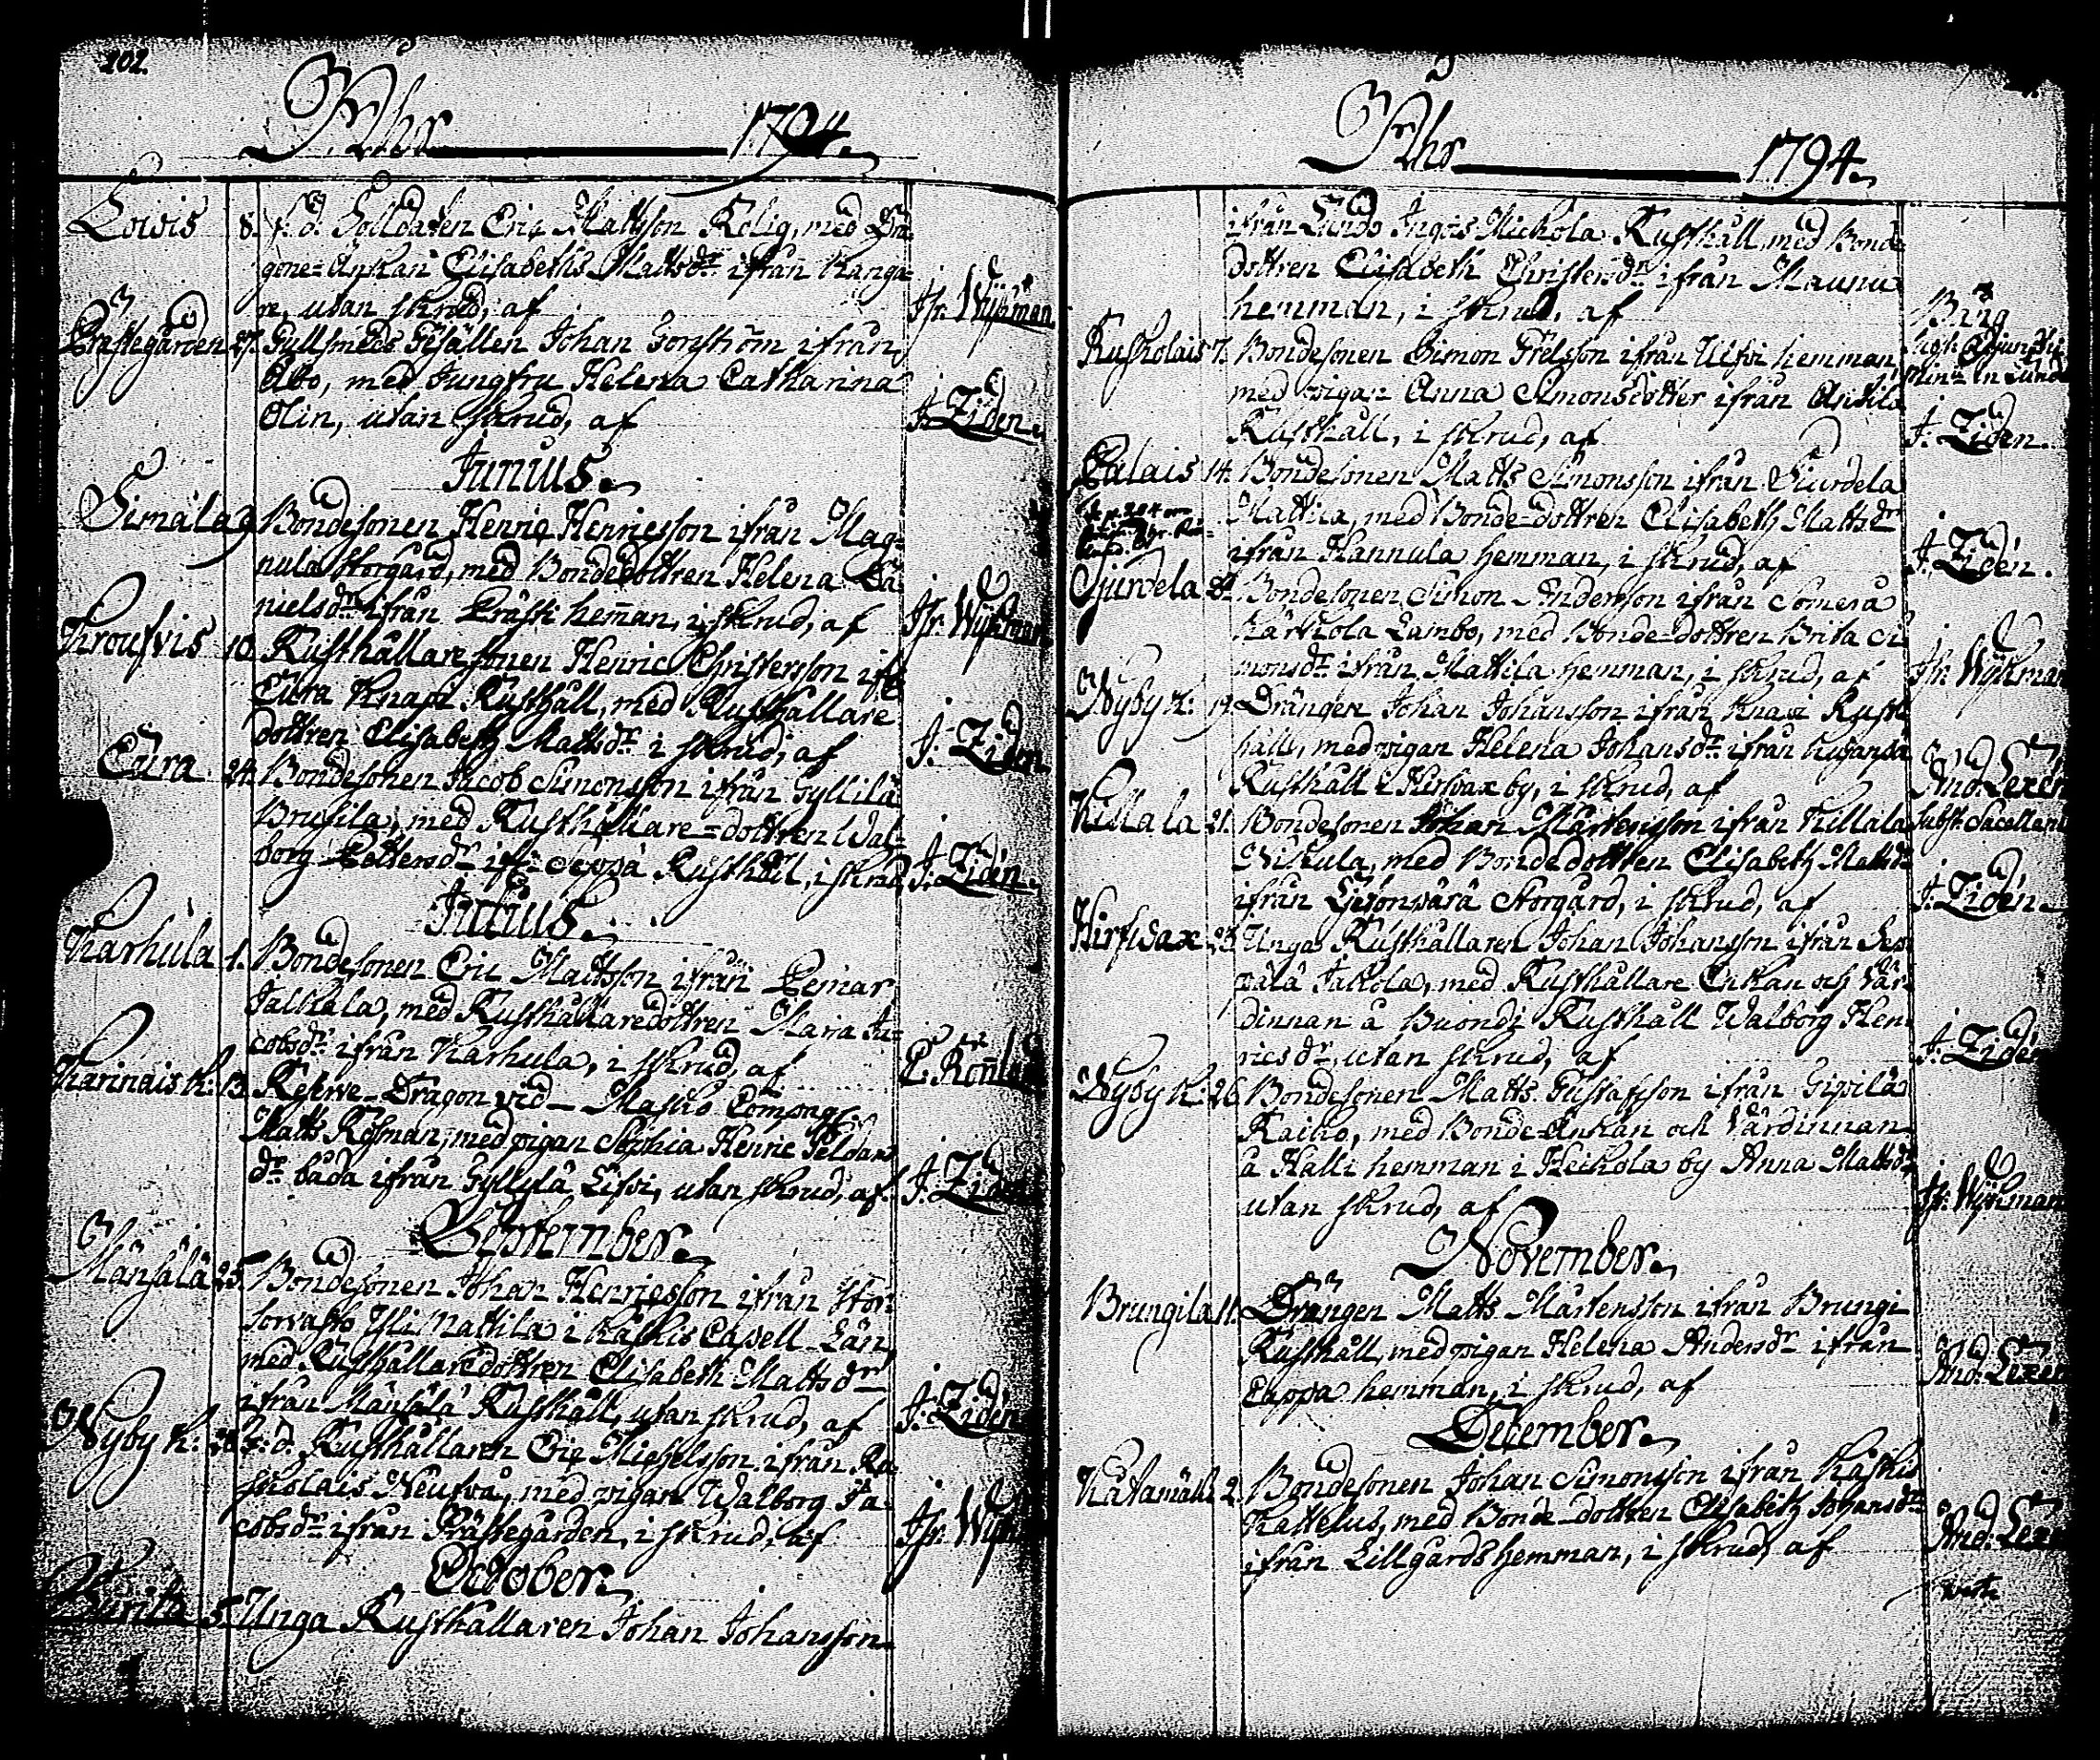 202.
Åhr 1794.
Loivis 8. f. d. Solldaten Eric Mattsson Rolig, med Dra-
gone-Änkan Elisabeth Mattsdr ifrån Kanga-
re, utan skrud, af Is. Wykman
Prästegården 27. Gullsmeds Gesällen Johan Gorström ifrån
Åbo, med Jungfru Helena Catharina
Olin, utan skrud, af J. Zidén.
Junius.
Simala 9 Bondesonen Henric Henricsson ifrån Mag-
nula Storgård, med Bondedottren Helena Da-
nielsdr ifrån Prästi heman, i skrud, af Is. Wykman
Kroufvis 10. Rusthållaresonen Henric Christersson ifr.
Eura Knapi Rusthåll, med Rusthållare
dottren Elisabeth Mattsdr i skrud, af J. Zidén
Eura 24. Bondesonen Jacob Simonsson ifrån Gyllilä
Brusila, med Rusthållare-dottren Wal-
borg Pettersdr ifr. Seppä Rusthåll, i skrud J. Zidén.
Julius.
Karhula 1. Bondesonen Eric Mattsson ifrån Pemar
Jalkala, med Rusthållaredottren Maria Ja-
cobsdr ifrån Karhula, i skrud, af
Karinais K: 13. Reserve-Dragon vid Masko Compagc.
Matts Rosman, med pigan Sophia Henric
dr båda ifrån Gyllylä utan skrud, af J. Zidén
September.
Mänsälä 25. Bondesonen Johan Henricsson ifrån Stor
Sorvasto Yli Mattila i Kåskis Capell Län,
med Rusthållaredottren Elisabeth Mattsdr
ifrån Mänsälä Rusthåll, utan skrud, af J. Zidén
Nyby K: 28. f: d. Rusthållaren Eric Michelsson ifrån Ra-
skolais Neufva, med pigan Walborg Ja-
cobsdr ifrån Prästegården, i skrud, af Is. Wyk
October.
5. Unga Rusthållaren Johan Johansson
Åhr 1794.
ifrån Lundo Ingois Mickola Rusthåll, med Bonde
dottren Elisabeth Christersdr ifrån Maunu
hemman, i skrud, af
Raskolais 7. Bondesonen Simon Frelsson ifrån hemman,
med pigan Anna Simonsdotter ifrån Anttila
Rusthåll, i skrud, af J. Zidén.
Palais 14. Bondesonen Matts Simonsson ifrån Giurdela
Mattila, med Bonde-dottren Elisabeth Mattsdr
ifrån Hannula hemman, i skrud, af J. Zidén.
Gjurdela Bondesonen Simon Andersson ifrån Somero
Härkola Lambo, med Bonde-dottren Brita Si-
monsdr ifrån Mattila hemman, i skrud, af Is. Wykman
Nyby K: 19. Drängen Johan Johansson ifrån Knapi Rust-
håll, med pigan Helena Johansdr ifrån
Rusthåll i Hirfvax by, i skrud, af And. Lexen
Subst. Sacellan
Killala 21. Bondesonen Johan Mårtensson ifrån Killala
Nikula, med Bondedottren Elisabeth Mattsdr
ifrån Storgård, i skrud, af J. Zidén.
Hirfvsax 23. Unga Rusthållaren Johan Johansson ifrån Sep-
pälä Jakola, med Rusthållare Enkan och Vär-
dinnan å Buondi Rusthåll Walborg Hen-
ricsdr, utan skrud, af J. Zidén
Nyby K: 26. Bondesonen Matts Gustafsson ifrån Gipilä
Raiko, med Bonde-Ankan och Värdinnan
å Halli hemman i Heikola by Anna Mattsdr
utan skrud, af Is. Wykman
November.
Brungila 11. Drängen Matts Mårtensson ifrån Brungi
Rusthåll, med pigan Helena Andersdr ifrån
Cappa hemman, i skrud, af And. Lexen
December.
Katamäki 2. Bondesonen Johan Simonsson ifrån Kaskis
Kattelus, med Bonde-dottren Elisabeth Johansdr
ifrån Lillgårds hemman, i skrud, af And. Lexen